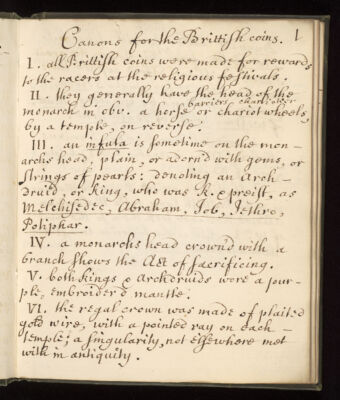 Canons for the Brittish coins. 1
I. all Brittish coins were made for rewards
to the racers at the religious festivals.
II. they generally have the head of the
barriers chariotteer
monarch in obv. a horse or chariot wheels,
by a temple, on reverse.
III. an infula is sometime on the mon-
archs head, plain, or adorn'd with gems, or
strings of pearls: denoting an Arch-
druid, or King, who was K. & preist, as
Melchisedec, Abraham, Job, Jethro,
Potiphar.
IV. a monarchs head crown'd with a
branch shows the Act of sacrificing.
V. both Kings & Archdruids wore a pur-
ple, embroider'd mantle.
VI. the regal crown was made of plaited
gold wire, with a pointed ray on each
temple; a singularity, not elsewhere met
with in antiquity.